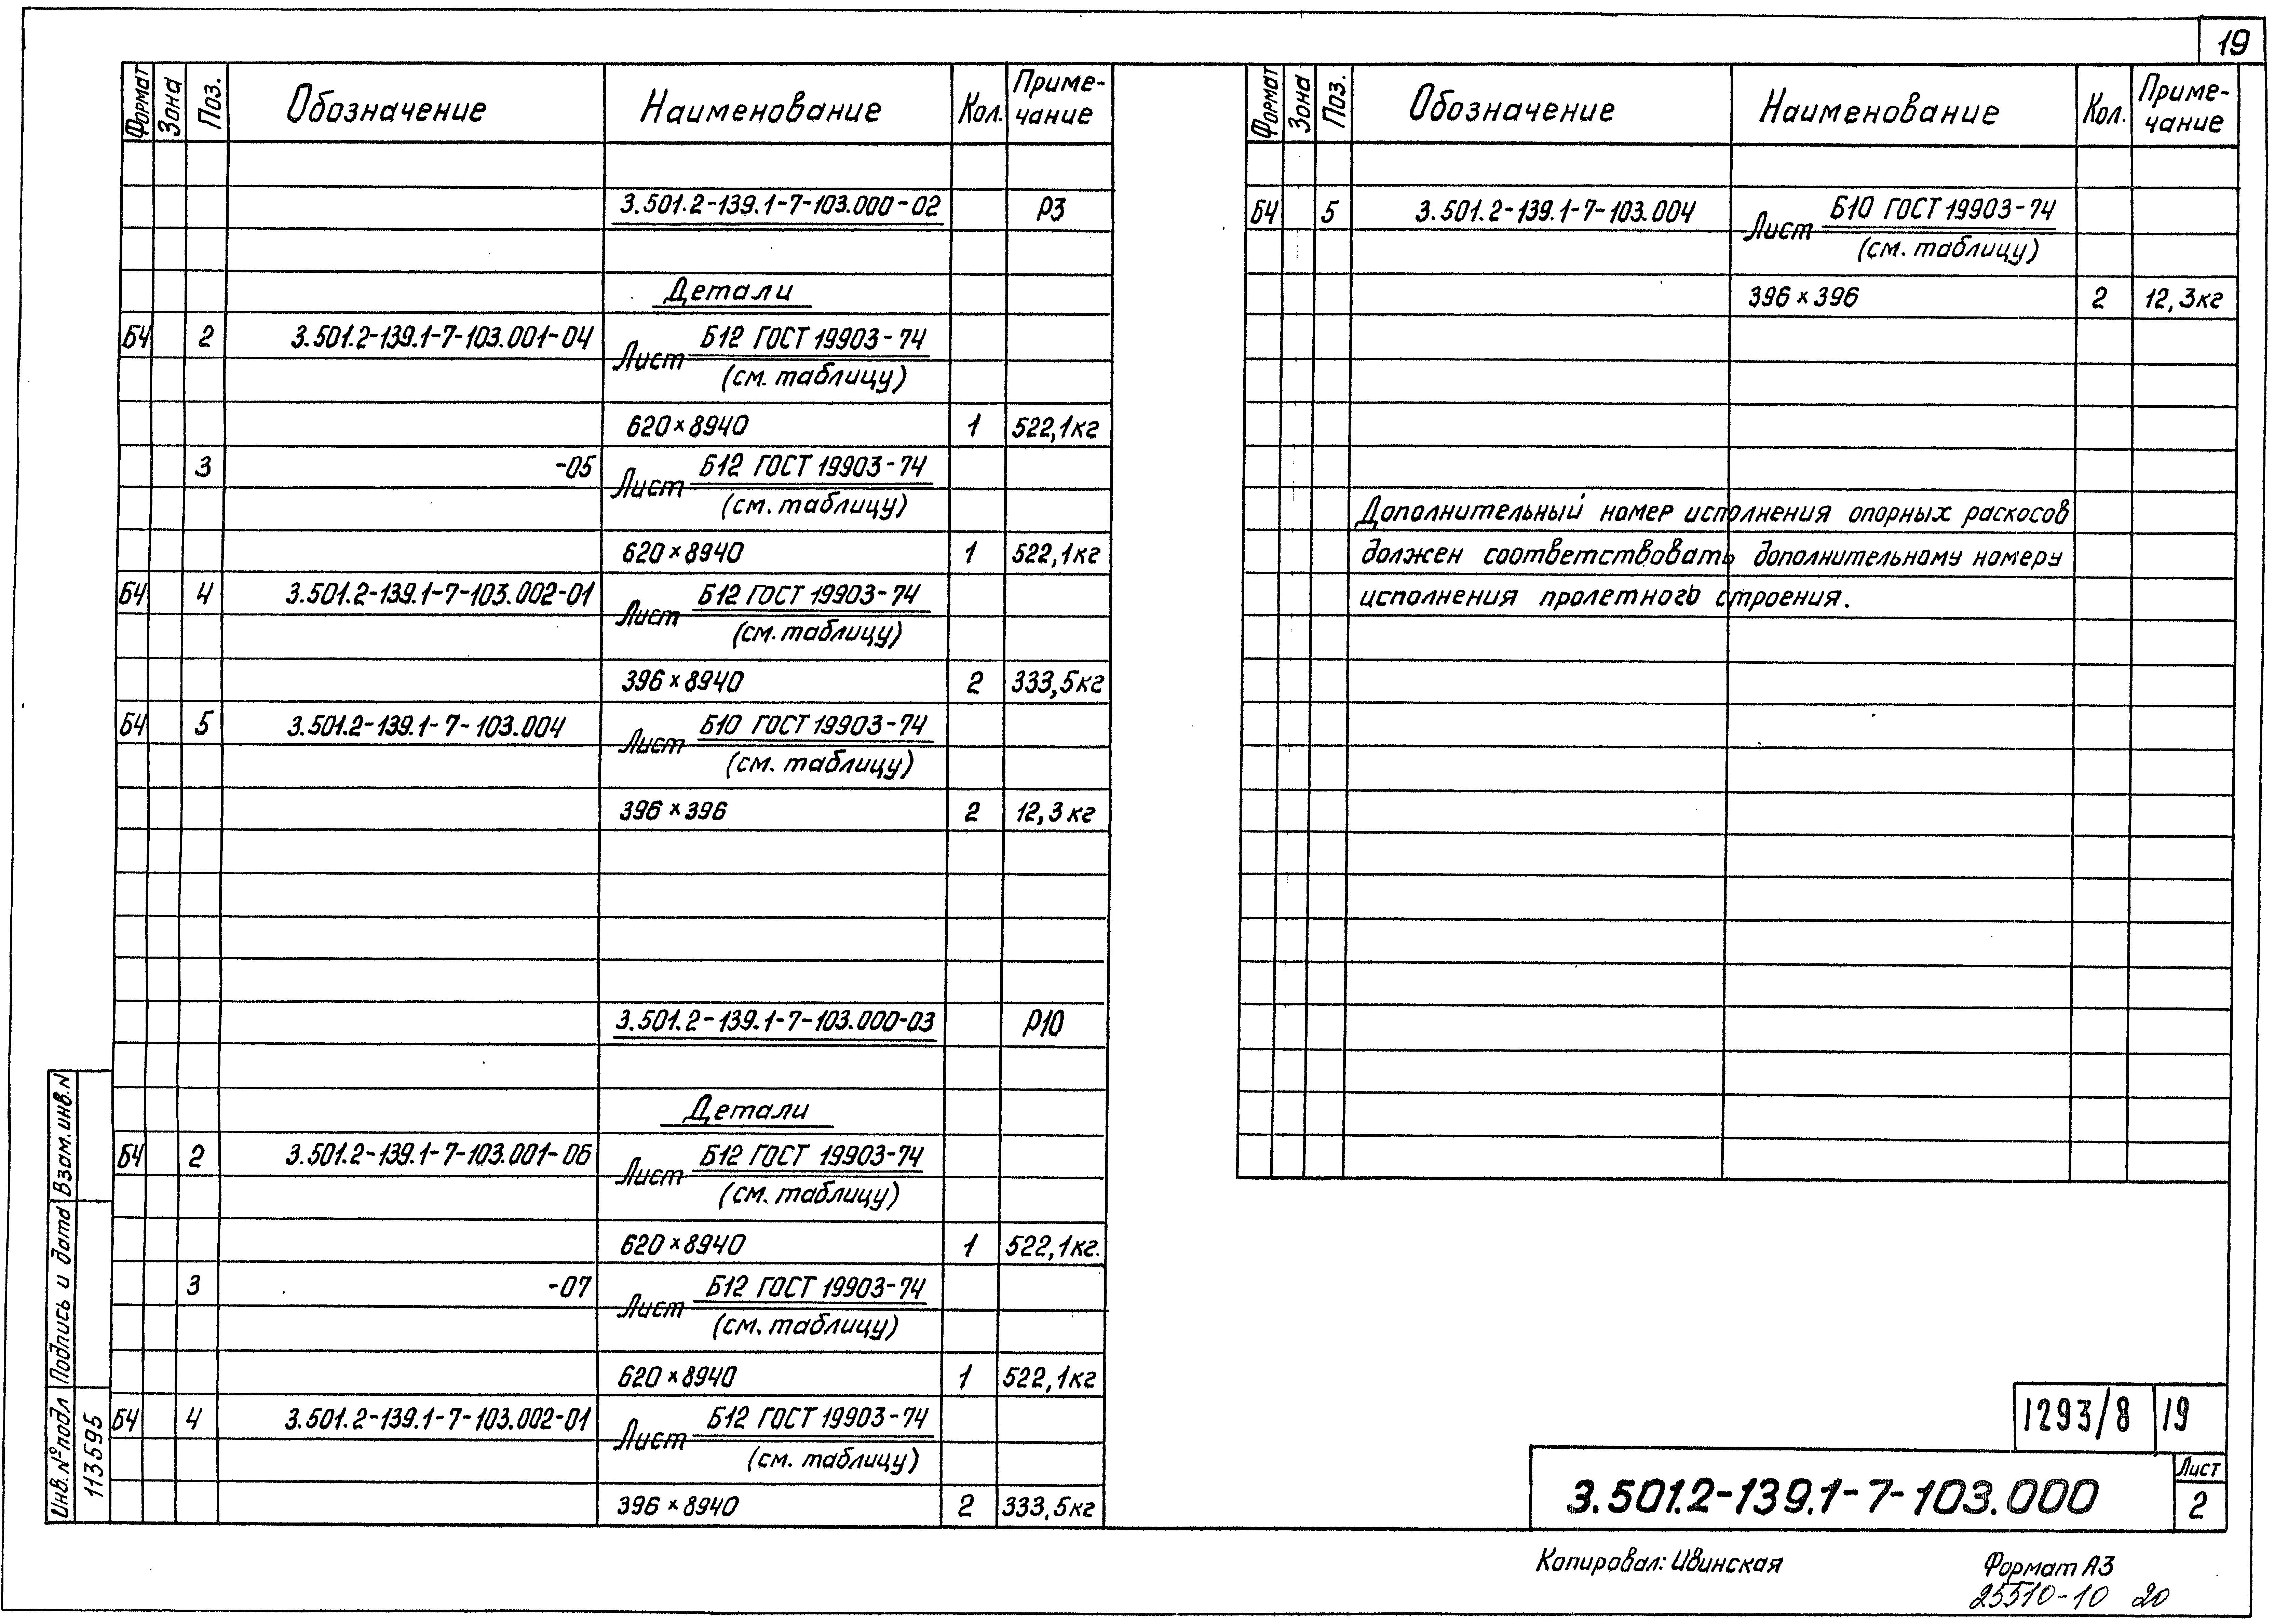 19
Формат Зона Поз. Обозначение Наименование Кол. Приме-
чание
3.501.2-139.1-7-103.000-02 Р3
Детали
БЧ 2 3.501.2-139.1-7-103.001-04 Лист Б12 ГОСТ 19903-74
(см. таблицу)
620×8940 1 522,1кг
3 -05 Лист Б12 ГОСТ 19903-74
(см. таблицу)
620×8940 1 522,1кг
БЧ 4 3.501.2-139.1-7-103.002-01 Лист Б12 ГОСТ 19903-74
(см. таблицу)
396×8940 2 333,5кг
БЧ 5 3.501.2-139.1-7-103.004 Лист Б10 ГОСТ 19903-74
(см. таблицу)
396×396 2 12,3кг
3.501.2-139.1-7-103.000-03 Р10
Детали
БЧ 2 3.501.2-139.1-7-103.001-06 Лист Б12 ГОСТ 19903-74
(см. таблицу)
620×8940 1 522,1кг.
3 -07 Лист Б12 ГОСТ 19903-74
(см. таблицу)
620×8940 1 522,1кг
БЧ 4 3.501.2-139.1-7-103.002-01 Лист Б12 ГОСТ 19903-74
(см. таблицу)
396×8940 2 333,5кг
Формат Зона Поз. Обозначение Наименование Кол. Приме-
чание
БЧ 5 3.501.2-139.1-7-103.004 Лист Б10 ГОСТ 19903-74
(см. таблицу)
396×396 2 12,3кг
Дополнительный номер исполнения опорных раскосов
должен соответствовать дополнительному номеру
исполнения пролетного строения.
Инв.№подл Подпись и дата Взам.инв.N
113595
1293/8 19
3.501.2-139.1-7-103.000
Лист
2
Копировал: Ивинская
Формат А3
25510-10 20